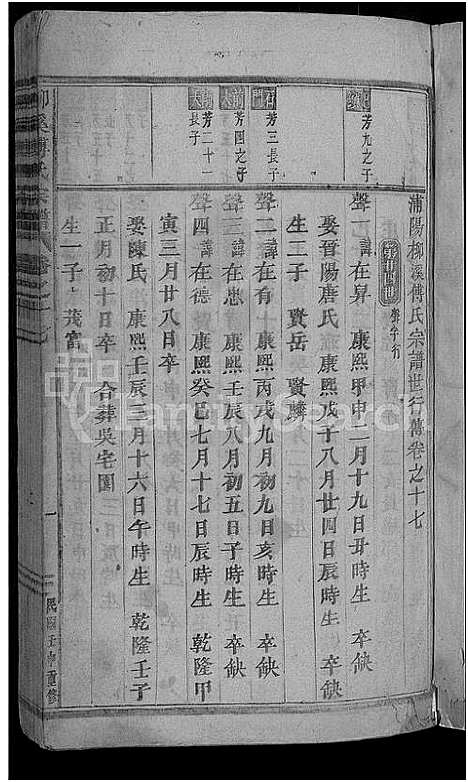 浦陽柳溪傅氏宗譜世行傳卷之十七
聲字行
芳九之子
聲一 諱在昇 康熙甲申二月十九日丑時生 卒缺
娶晉陽唐氏 康熙戊子八月廿四日辰時生 卒缺
生二子 賢岳 賢麟
芳三長子
聲二 諱在有 康熙丙戌九月初九日亥時生 卒缺
芳四之子
聲三 諱在忠 康熙壬辰八月初五日子時生 卒缺
芳二十一長子
聲四 諱在德 康熙癸巳七月十七日辰時生 乾隆甲
寅三月廿八日卒
娶陳氏 康熙壬辰三月十六日午時生 乾隆壬子
正月初十日卒 合葬吳宅園
生一子 茂富
柳溪傅氏宗譜 卷之十七
一
民國壬申重修
FamilySearch